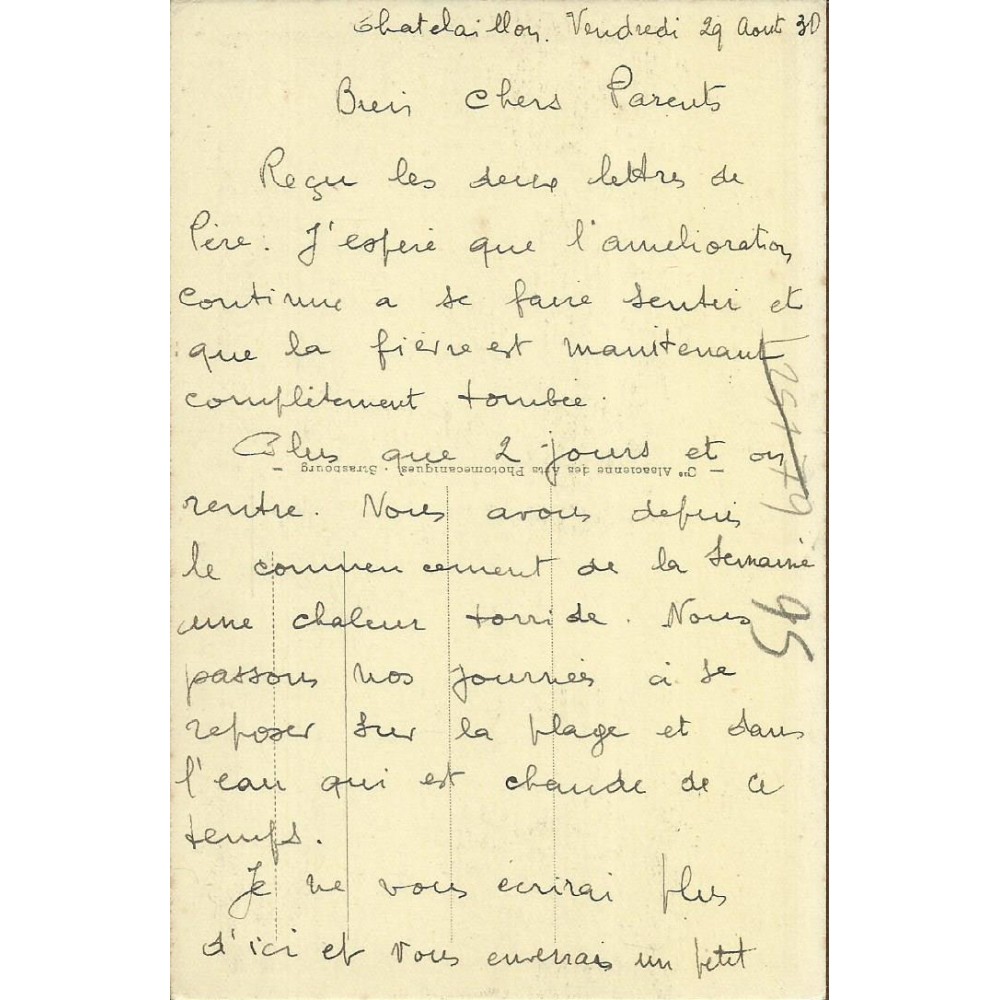 Chatelaillon. Vendredi 29 Aout 30
Bien Chers Parents
Reçu les deux lettres de
Père. J'espère que l'amelioration
continue a se faire sentir et
que la fièvre est maintenant
complètement tombée.
Plus que 2 jours et on
Cie Alsacienne des Arts Photomécaniques, Strasbourg
rentre. Nous avons depuis
le commencement de la semaine
une chaleur torride. Nous
passons nos journées à se
reposer sur la plage et dans
l'eau qui est chaude de ce
temps.
Je ne vous écrirai plus
d'ici et vous enverrais un petit
95